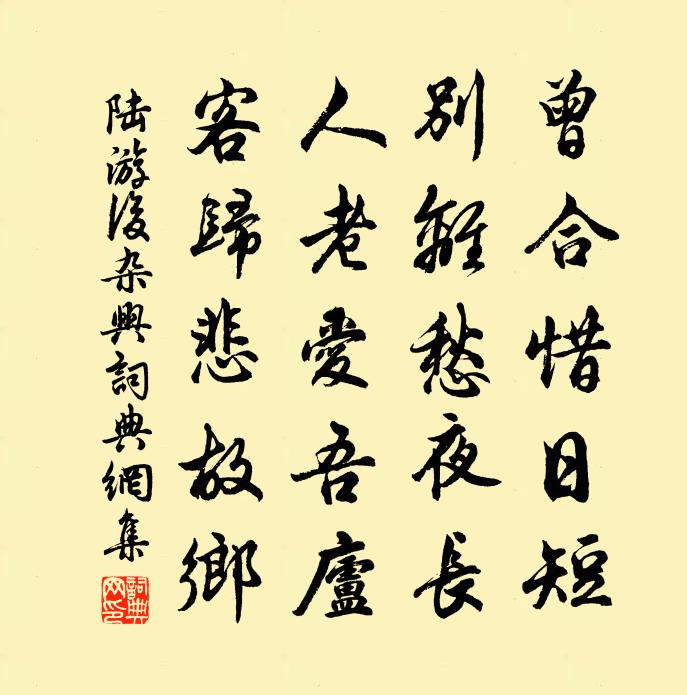 曾合惜日短
別離愁夜長
人老愛吾廬
客歸悲故鄉
陸游後杂興詞典網集
詞典網印